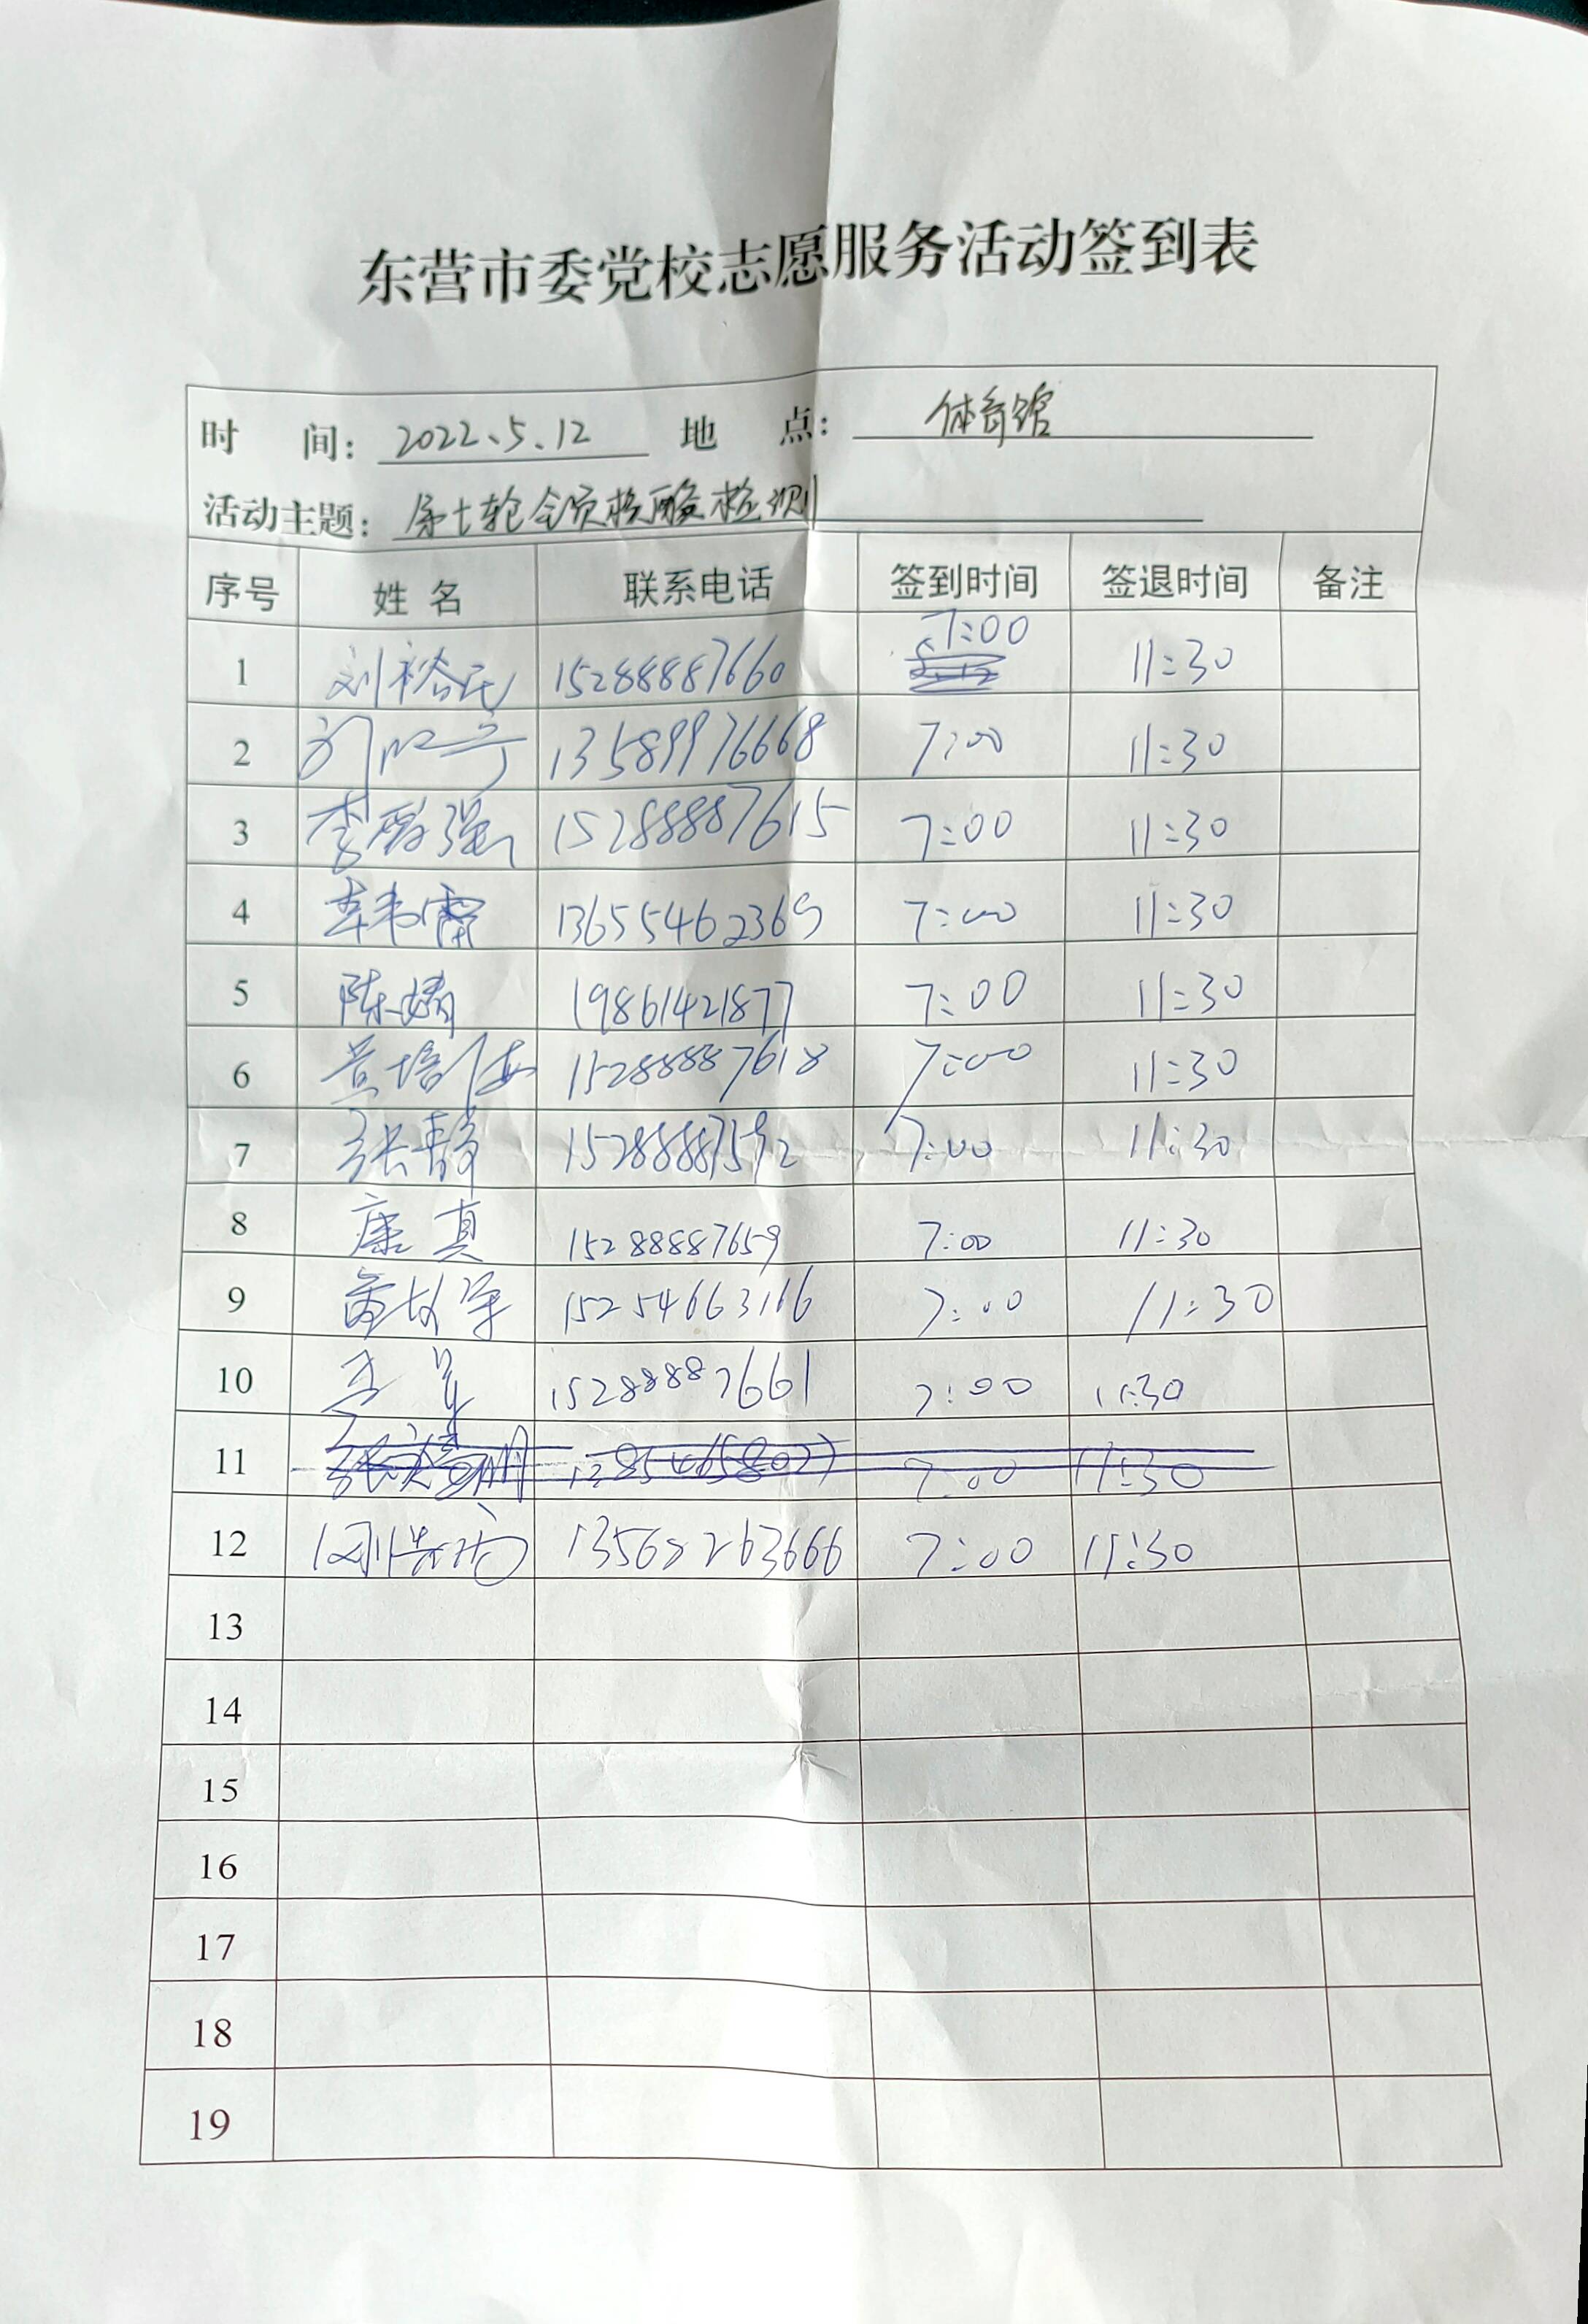 东营市委党校志愿服务活动签到表
时 间: 2022、5、12 地 点: 体育馆
活动主题: 第七轮全员核酸检测
序号 姓 名 联系电话 签到时间 签退时间 备注
1 刘裕氏 15288887660 7:00 11:30
2 13589976668 7:00 11:30
3 李 强 15288887615 7:00 11:30
4 13655462369 7:00 11:30
5 陈婧 19861421877 7:00 11:30
6 黄培 15288887618 7:00 11:30
7 张静 15288887592 7:00 11:30
8 康真 15288887659 7:00 11:30
9 15254663166 7:00 11:30
10 15288887661 7:00 11:30
11 7:00 11:30
12 7:00 11:30
13
14
15
16
17
18
19